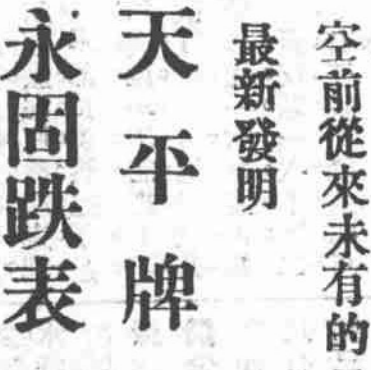 空前從來未有的
最新發明
天平牌
永固跌表